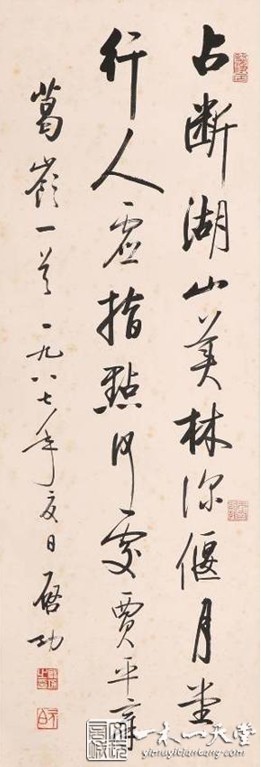 占断湖山美林深偃月堂
行人虚指點何處賈平章
葛嶺一首一九八七年夏日啓功
一木一天堂
yimuyitiantang.com